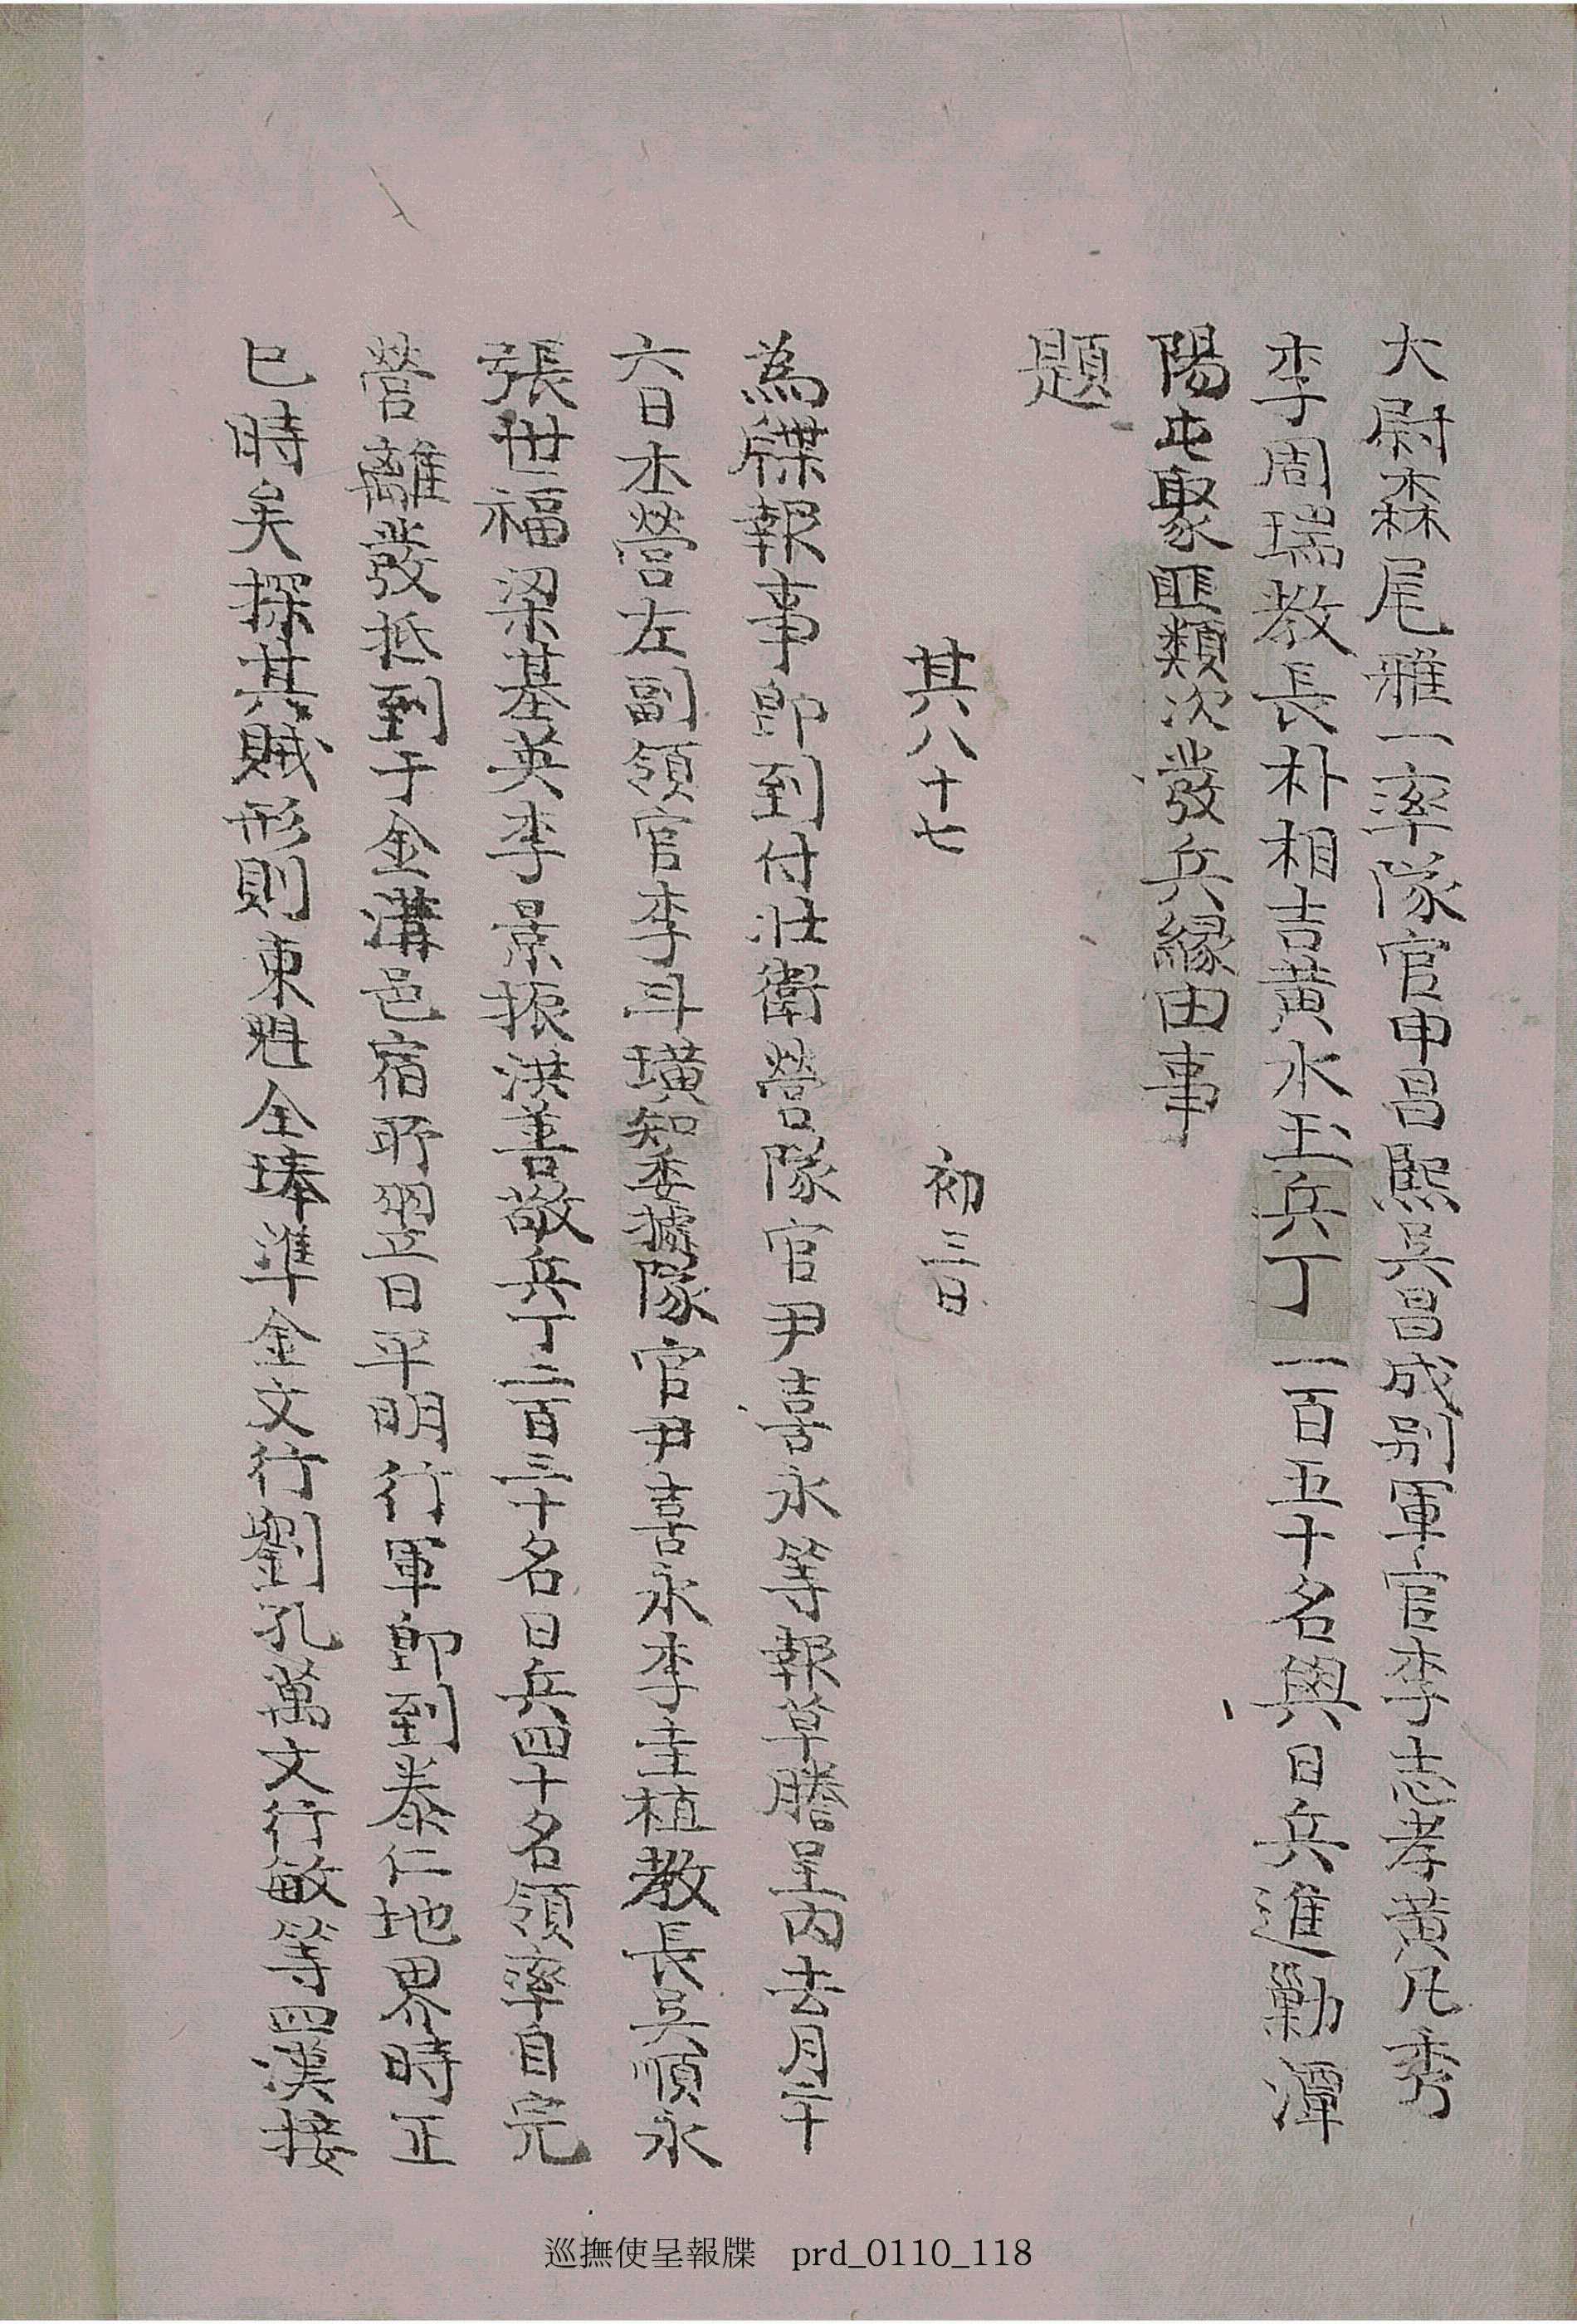 大尉森尾雅一率隊官申昌熙吳昌成別軍官李志孝黃凡秀
李周瑞教長朴相吉黃水玉兵丁一百五十名與日兵進勦潭
陽屯聚匪類次發兵緣由事
題
其八十七 初三日
為牒報事卽到付壯衛營隊官尹喜永等報草謄呈內去月二十
六日本營左副領官李斗璜知委據隊官尹喜永李圭植教長吳順永
張世福梁基英李景振洪善敬兵丁二百三十名日兵四十名領率自完
營離發抵到于金溝邑宿所翌日平明行軍卽到泰仁地界時正
巳時矣探其賊形則東魁全琫準金文行劉孔萬文行敏等四漢接
巡撫使呈報牒 prd_0110_118